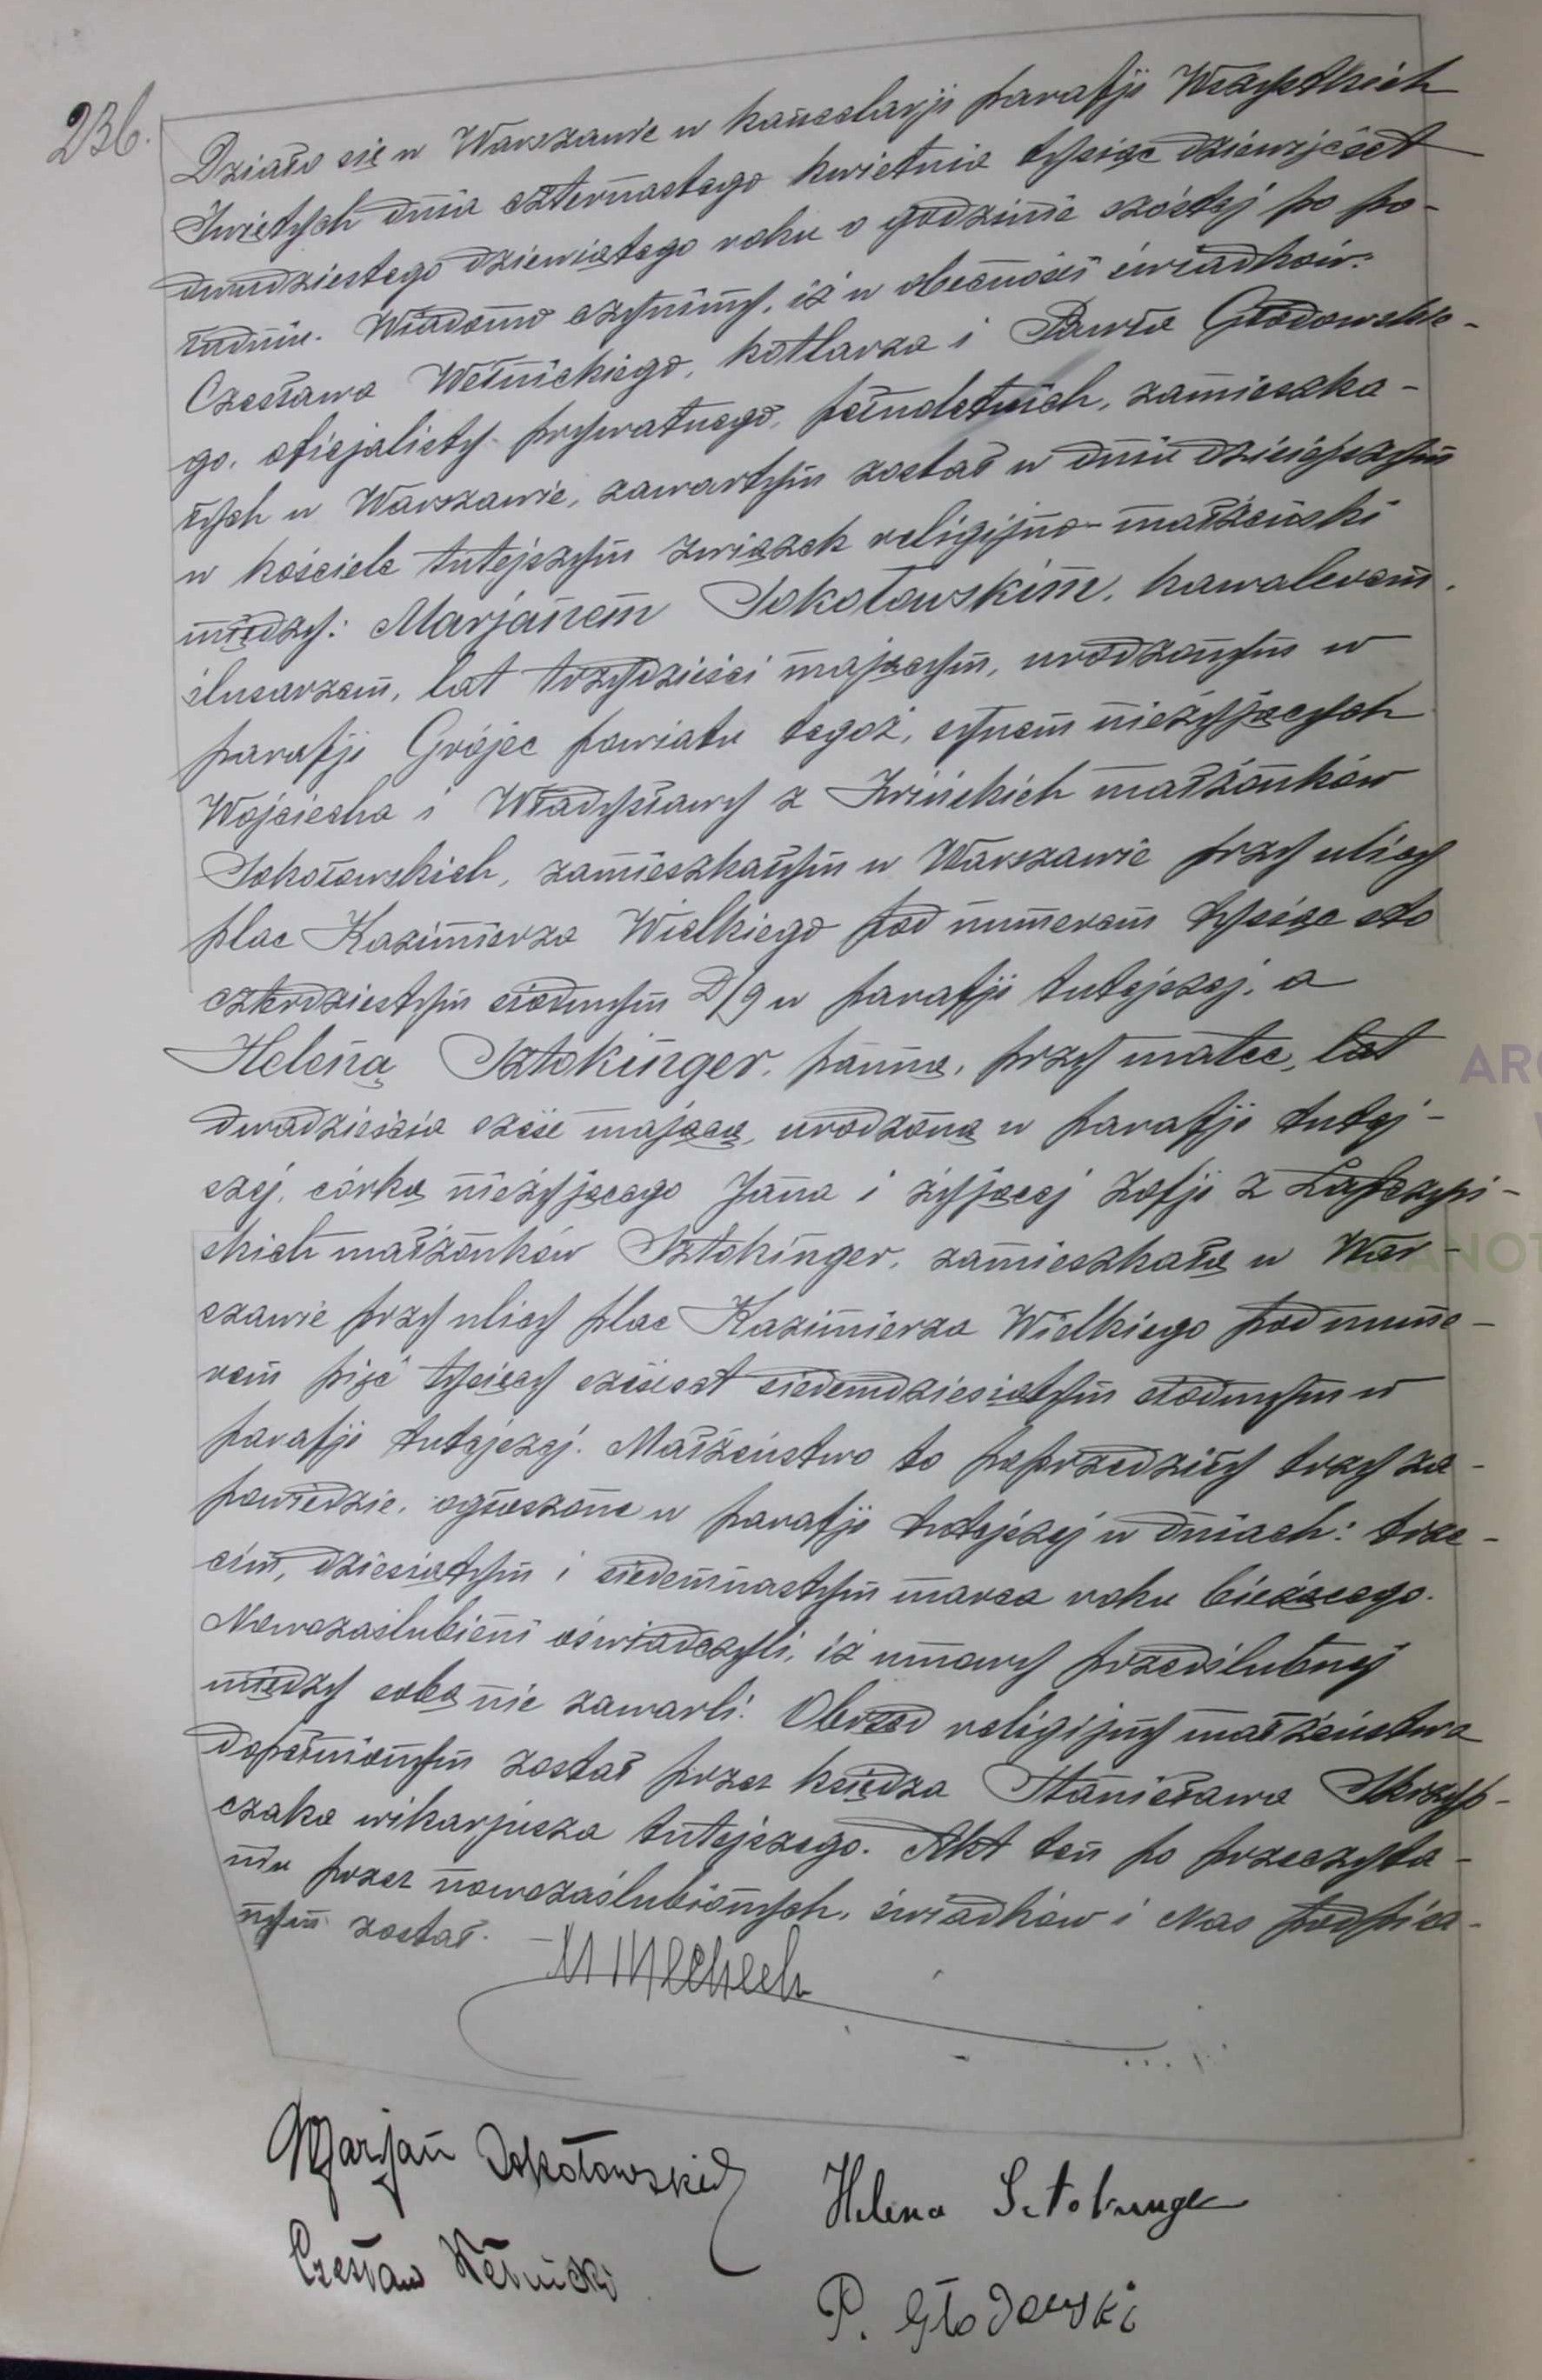 236.
Działo się w Warszawie w kancelarji parafji Wszystkich
Świętych dnia czternastego kwietnia tysiąc dziewięćset
dwudziestego dziewiątego roku o godzinie szóstej po po-
łudniu. Wiadomo czynimy, iż w obecności świadków:
Czesława Wełnickiego, kotlarza i Pawła Głodowskie-
go, oficjalisty prywatnego, pełnoletnich, zamieszka-
łych w Warszawie, zawartym został w dniu dzisiejszym
w kościele tutejszym związek religijno-małżeński
między: Marjanem Sokołowskim, kawalerem,
ślusarzem, lat trzydzieści mającym, urodzonym w
parafji Grójec powiatu tegoż, synem nieżyjących
Wojciecha i Władysławy z małżonków
Sokołowskich, zamieszkałym w Warszawie przy ulicy
plac Kazimierza Wielkiego pod numerem tysiąc sto
czterdziestym siódmym D/9 w parafji tutejszej, a
Heleną Sztokinger, panną, przy matce, lat
dwadzieścia sześć mającą, urodzoną w parafji tutej-
szej, córką nieżyjącego Jana i żyjącej Zofji z
skich małżonków Sztokinger, zamieszkałą w War-
szawie przy ulicy plac Kazimierza Wielkiego pod nume-
rem pięć tysięcy sześćset siedemdziesiątym siódmym w
parafji tutejszej. Małżeństwo to poprzedziły trzy za-
powiedzie, ogłoszone w parafji tutejszej w dniach: trze-
cim, dziesiątym i siedemnastym marca roku bieżącego.
Nowozaślubieni oświadczyli, iż umowy przedślubnej
między sobą nie zawarli. Obrzęd religijny małżeństwa
dopełnionym został przez księdza Stanisława Skrzyp-
czaka wikarjusza tutejszego. Akt ten po przeczyta-
niu przez nowozaślubionych, świadków i Nas podpisa-
nym został.
Marjan Sokołowski
Helena Sztokinger
Czesław Wełnicki
P. Głodowski
ARC
NOT